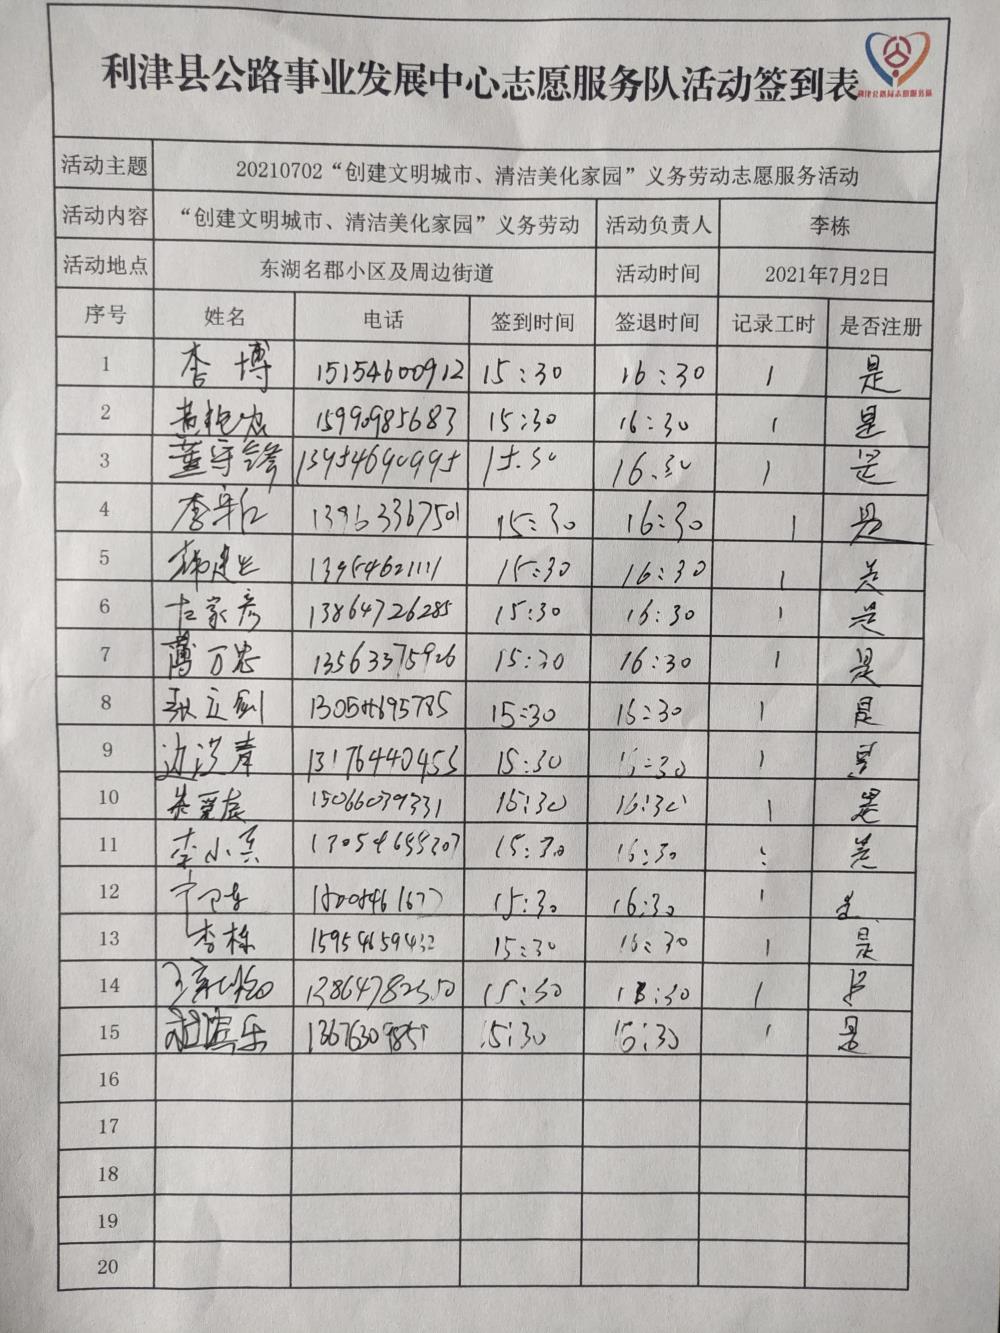 利津县公路事业发展中心志愿服务队活动签到表
利津公路局志愿服务队
活动主题 20210702“创建文明城市、清洁美化家园”义务劳动志愿服务活动
活动内容 “创建文明城市、清洁美化家园”义务劳动 活动负责人 李栋
活动地点 东湖名郡小区及周边街道 活动时间 2021年7月2日
序号 姓名 电话 签到时间 签退时间 记录工时 是否注册
1 李博 15154600912 15:30 16:30 1 是
2 15990985683 15:30 16:30 1 是
3 董守锋 15.30 16.30 1 是
4 李守仁 13963367501 15:30 16:30 1 是
5 韩建生 13954621111 15:30 16:30 1 是
6 左家彦 13864726285 15:30 16:30 1 是
7 万忠 13563375926 15:30 16:30 1 是
8 张立剑 13054695785 15:30 16:30 1 是
9 边洪青 13176440455 15:30 16:30 1 是
10 15066039331 15:30 16:30 1 是
11 李小 15:30 16:30 是
12 15:30 16:30 1 是
13 李栋 15954659432 15:30 16:30 1 是
14 15:30 16:30 1 是
15 15:30 16:30 1 是
16
17
18
19
20